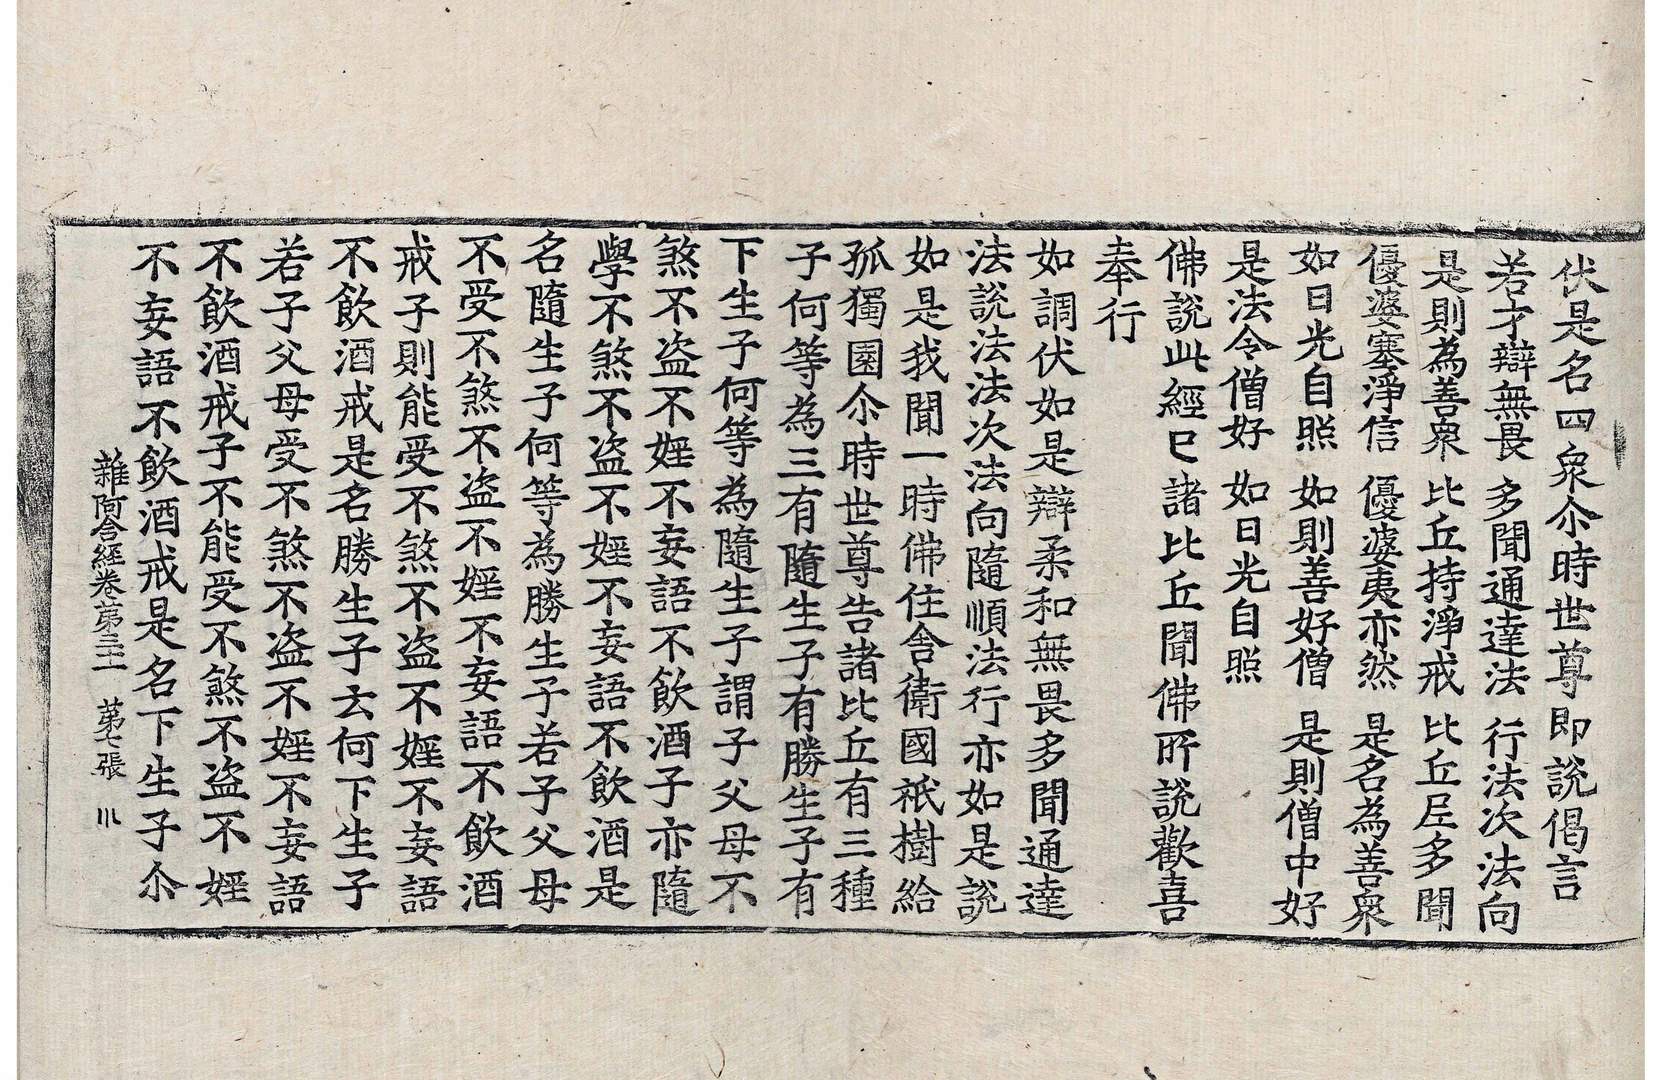 伏是名四衆尒時世尊即說偈言
若才辯無畏 多聞通達法 行法次法向
是則為善衆 比丘持淨戒 比丘尼多聞
優婆塞淨信 優婆夷亦然 是名為善衆
如日光自照 如則善好僧 是則僧中好
是法令僧好 如日光自照
佛說此經已諸比丘聞佛所說歡喜
奉行
如調伏如是辯柔和無畏多聞通達
法說法法次法向隨順法行亦如是說
如是我聞一時佛住舍衛國祇樹給
孤獨園尒時世尊告諸比丘有三種
子何等為三有隨生子有勝生子有
下生子何等為隨生子謂子父母不
煞不盜不婬不妄語不飲酒子亦隨
學不煞不盜不婬不妄語不飲酒是
名隨生子何等為勝生子若子父母
不受不煞不盜不婬不妄語不飲酒
戒子則能受不煞不盜不婬不妄語
不飲酒戒是名勝生子云何下生子
若子父母受不煞不盜不婬不妄語
不飲酒戒子不能受不煞不盜不婬
不妄語不飲酒戒是名下生子尒
雜阿含經卷第三十一 第七張 川